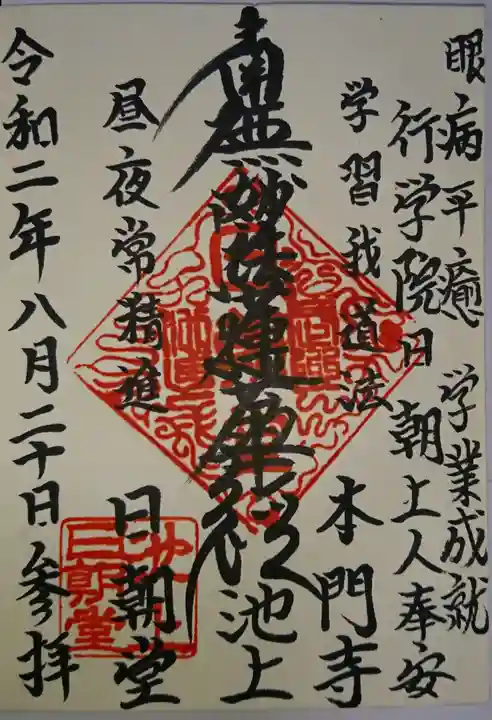 眼病平癒 学業成就
行学院日朝上人奉安
学習我道法 本門寺
南無妙法蓮華経 池上
昼夜常精進 日朝堂
令和二年八月二十日参拝
日朝堂